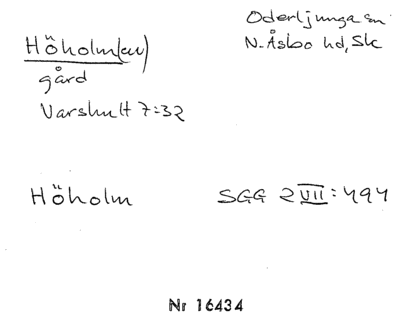 Höholm(en)
gård
Varshult 7:32
Oderljunga sn
N. Åsbo hd, Sk
Höholm SGG 2 VII: 494
Nr 16434